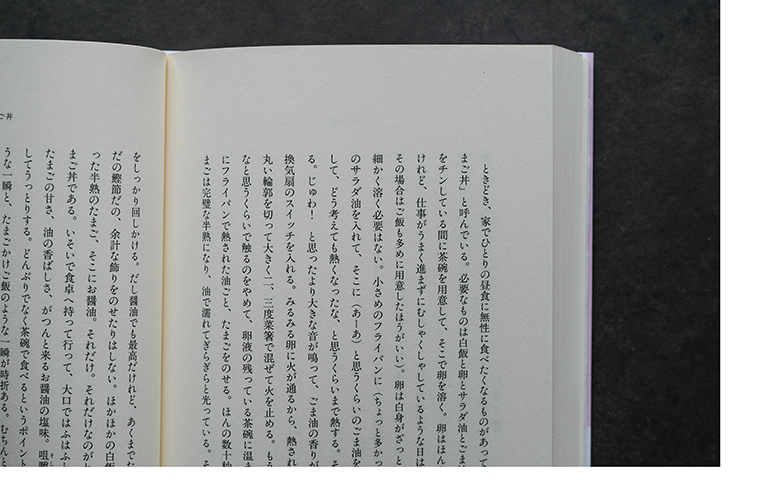 ときどき、家でひとりの昼食に無性に食べたくなるものがあって
まご丼」と呼んでいる。必要なものは白飯と卵とサラダ油とごま
をチンしている間に茶碗を用意して、そこで卵を溶く。卵はほん
けれど、仕事がうまく進まずにむしゃくしゃしているような日は
その場合はご飯も多めに用意したほうがいい）。卵は白身がざっと
細かく溶く必要はない。小さめのフライパンに（ちょっと多かっ
のサラダ油を入れて、そこに（あーあ）と思うくらいのごま油を
して、どう考えても熱くなったな、と思うくらいまで熱する。そ
る。じゅわ！　と思ったより大きな音が鳴って、ごま油の香りが
換気扇のスイッチを入れる。みるみる卵に火が通るから、熱され
丸い輪郭を切って大きく二、三度菜箸で混ぜて火を止める。もう
なと思うくらいで触るのをやめて、卵液の残っている茶碗に温ま
にフライパンで熱された油ごと、たまごをのせる。ほんの数十秒
まごは完璧な半熟になり、油で濡れてぎらぎらと光っている。そ
ご丼
をしっかり回しかける。だし醤油でも最高だけれど、あくまでた
だの鰹節だの、余計な飾りをのせたりはしない。ほかほかの白飯
った半熟のたまご、そこにお醤油。それだけ。それだけなのが
まご丼である。いそいで食卓へ持って行って、大口ではふはふし
たまごの甘さ、油の香ばしさ、がつんと来るお醤油の塩味。咀嚼
してうっとりする。どんぶりでなく茶碗で食べるというポイント
うな一瞬と、たまごかけご飯のような一瞬が時折ある。むちんと